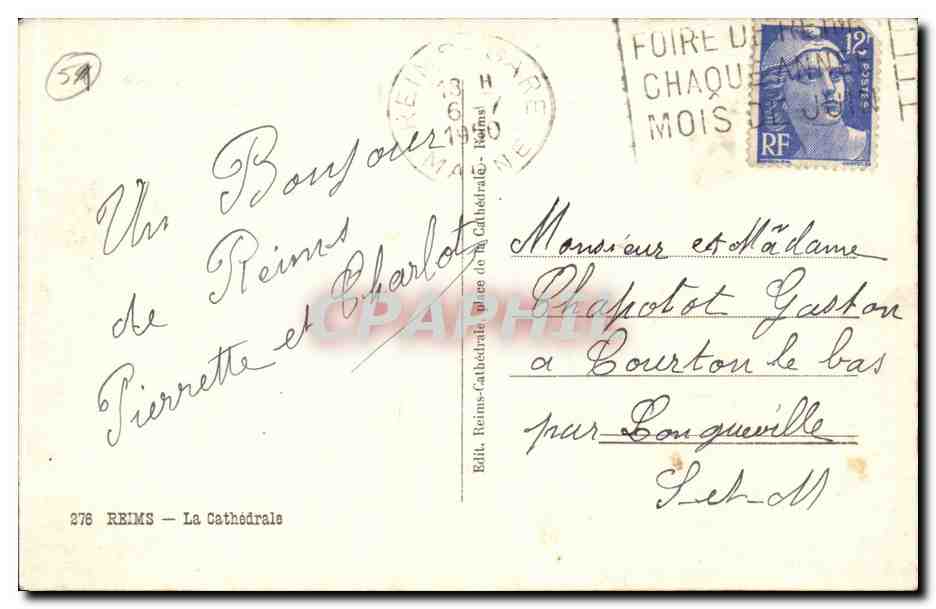 51
REIMS-GARE
13 H
6
1950
MARNE
FOIRE DE REIMS
CHAQUE ANN
MOIS DE
12F
POSTES
RF
Un Bonjour
de Reims
Pierrette et Charlot
Edit. Reims-Cathédrale place de la Cathédrale - Reims
Monsieur et Madame
Chapotot Gaston
a Courton le bas
par Longueville
S-et-M
CPAPHIL
276 REIMS — La Cathédrale